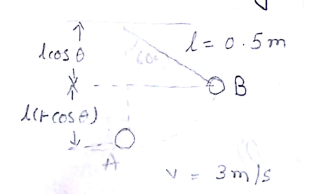 l cos θ
60°
l = 0.5m
B
l(1-cos θ)
A
v = 3m/s